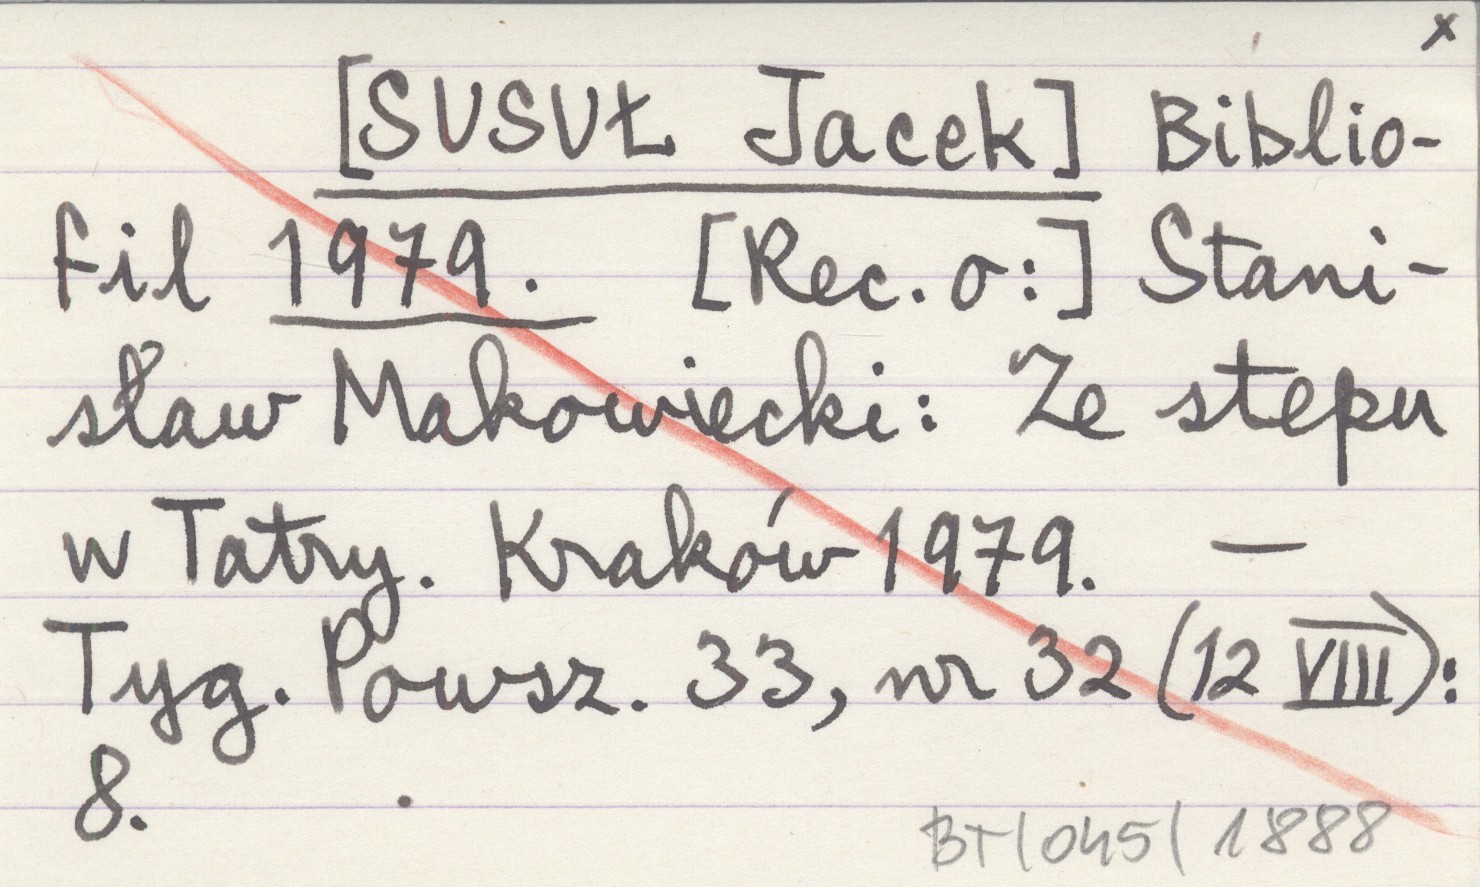 x
[SUSUŁ Jacek] Biblio-
fil 1979. [Rec. o:] Stani-
sław Makowiecki: Ze stepu
w Tatry. Kraków 1979. —
Tyg. Powsz. 33, nr 32 (12 VIII):
8.
BT/045/1888